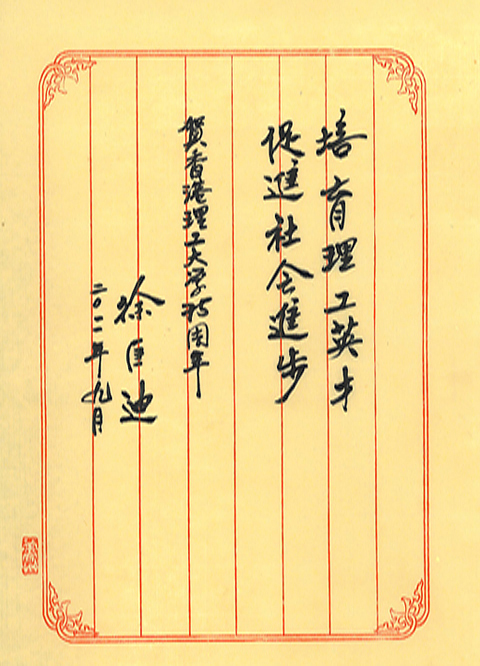 培育理工英才
促進社会進步
賀香港理工大学75周年
徐匡迪
二〇一一年九月